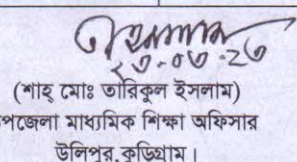 ২৩-০৩-২৩
(শাহ্ মোঃ তারিকুল ইসলাম)
পজেলা মাধ্যমিক শিক্ষা অফিসার
উলিপুর,কুড়িগ্রাম।